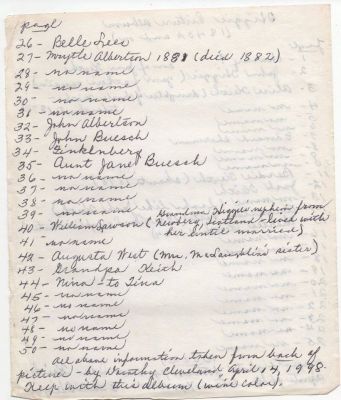 page
26 - Belle Lees
27 - Myrtle Albertson 1881 (died 1882)
28 - no name
29 - no name
30 - no name
31 - no name
32 - John Albertson
33 - John Buesch
34 - Finkenberg
35 - Aunt Jane Buesch
36 - no name
37 - no name
38 - no name
39 - no name
40 - William Lawson (Grandma Higgie's nephew from Newberg, Scotland - lived with her until married)
41 - no name
42 - Augusta West (Mr. McLaughlin's sister)
43 - Grandpa Keith
44 - Nina - to Tina
45 - no name
46 - no name
47 - no name
48 - no name
49 - no name
50 - no name
All above information taken from back of
picture - by Dorothy Cleveland April 14, 1998.
Keep with this album (wine color).